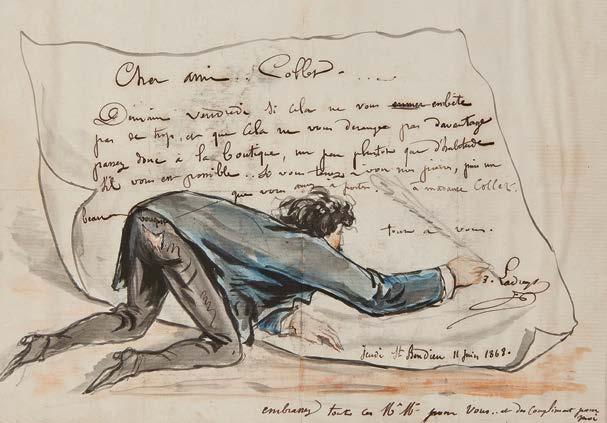 Cher ami .. Collet. ...
Demain vendredi si cela ne vous embête
pas de trop. et que cela ne vous derange pas davantage
passez donc à la boutique, un peu plutôt que d'habitude
s'il vous est possible... à vous
que vous à porter. à madame Collet.
beau bouquet
tout a vous.
J. Ladreyt
Jeudi St Bondieu 11 juin 1868.
embrassez toutes ces Mrs Mes pour Vous.. et des Compliment pour
moi